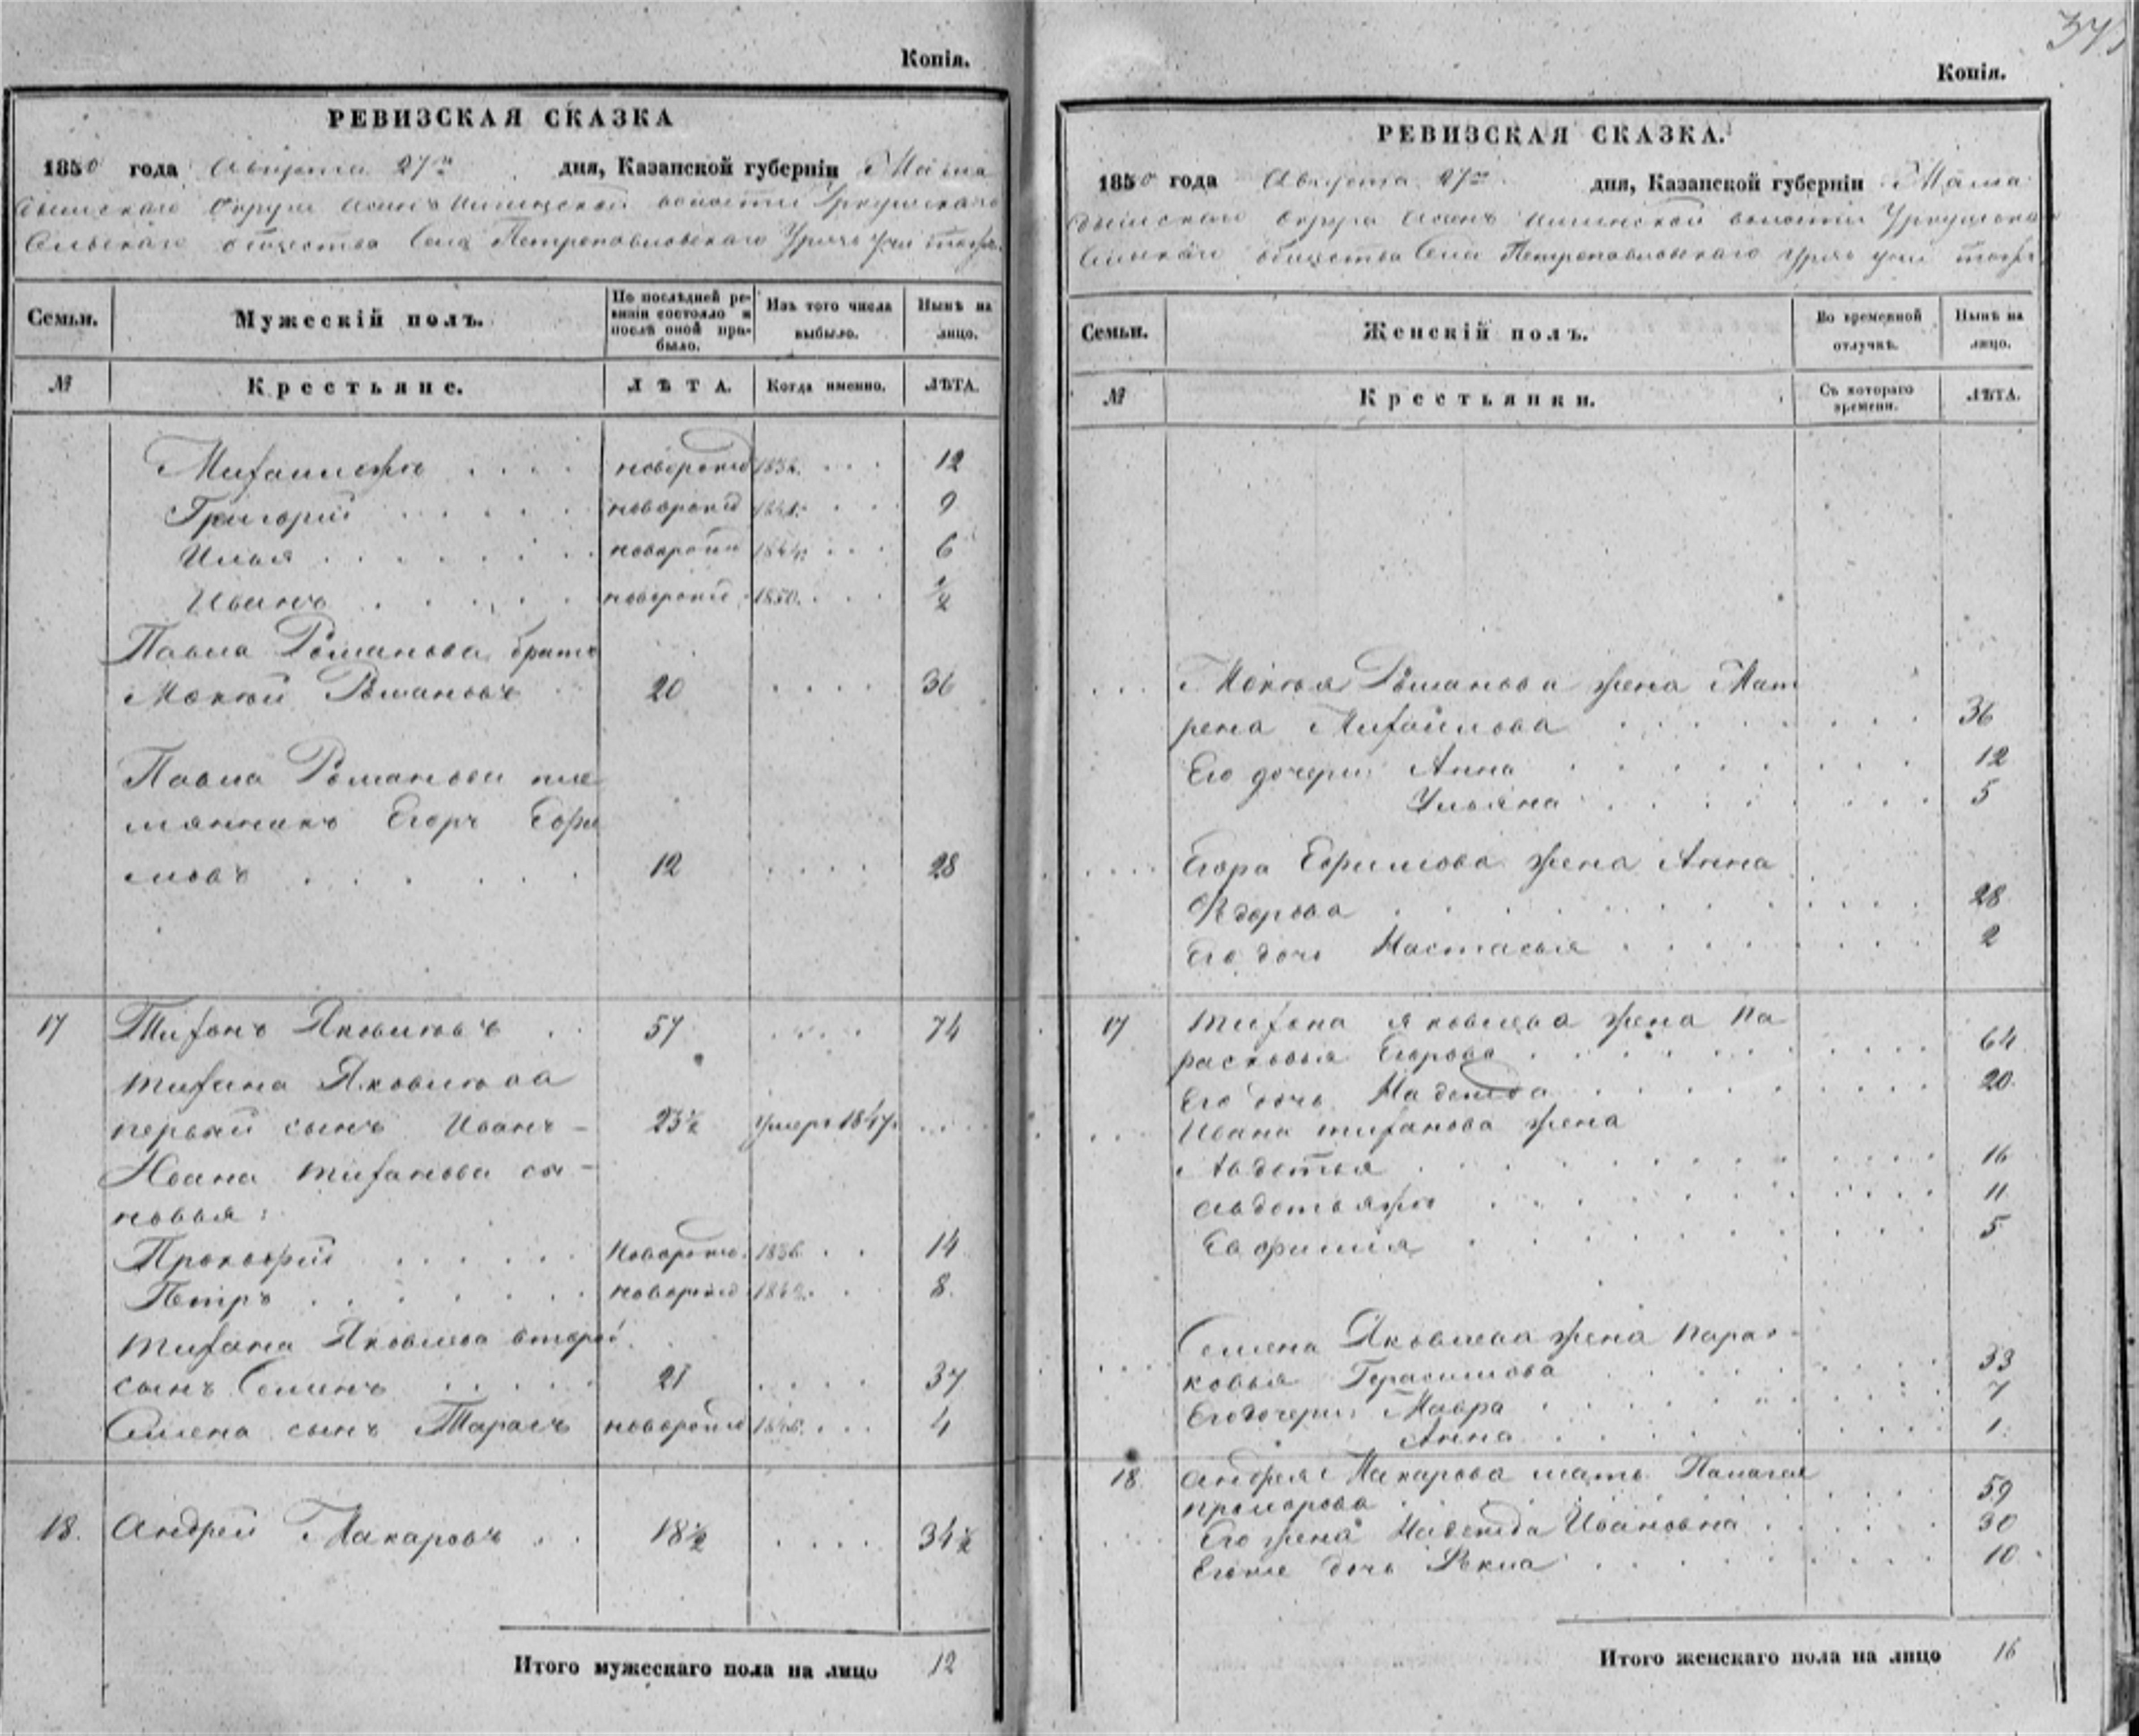 345
Копія.
РЕВИЗСКАЯ СКАЗКА
1850 года Августа 27го дня, Казанской губерніи Мама
дышскаго Округа волости
Сельскаго общества Села Петропавловскаго
Семьи. Мужескій полъ. По послѣдней ревизіи состояло и послѣ оной прибыло. Изъ того числа выбыло. Нынѣ на лицо.
№ Крестьяне. ЛѢТА. Когда именно. ЛѢТА.
Михаилъ новорожд 1838. 12
Григорій новорожд 1841. 9
Илья новорожд 1844. 6
Иванъ новорожд 1850. ½
Павла Романова братъ
Мокѣй Романовъ 20 36
Павла Романова пле
мянникъ Егоръ Ефи
мовъ 12 28
17 Тихонъ Яковлевъ 57 74
Тихона Яковлева
первый сынъ Иванъ 23½ умеръ 1847.
Ивана Тихонова сы-
новья:
Прокофій новорожд. 1836. 14
Петръ новорожд 1842. 8
Тихона Яковлева второй
сынъ Семенъ 21 37
Семена сынъ Тарасъ новорожд 1846. 4
18. Андрей Макаровъ 18½ 34½
Итого мужескаго пола на лицо 12
Копія.
РЕВИЗСКАЯ СКАЗКА.
1850 года Августа 27го дня, Казанской губерніи Мама
дышскаго Округа волости
Сельскаго общества Села Петропавловскаго
Семьи. Женскій полъ. Во временной отлучкѣ. Нынѣ на лицо.
№ Крестьянки. Съ котораго времени. ЛѢТА.
Мокѣя Романова жена Мат
рена Михайлова 36
Его дочери Анна 12
Ульяна 5
Егора Ефимова жена Анна
Ѳедорова 28
Его дочь Настасья 2
17 Тихона Яковлева жена Па
расковья Егорова 64
Его дочь Надежда 20
Ивана Тихонова жена
Авдотья 16
Авдотья 11
Евфимія 5
Семена Яковлева жена Парас-
ковья Герасимова 33
Его дочери: Мавра 7
Анна 1
18 Андрея Макарова мать Палагея
59
Его жена Надежда Ивановна 30
Егоже дочь Ѳекла 10
Итого женскаго пола на лицо 16